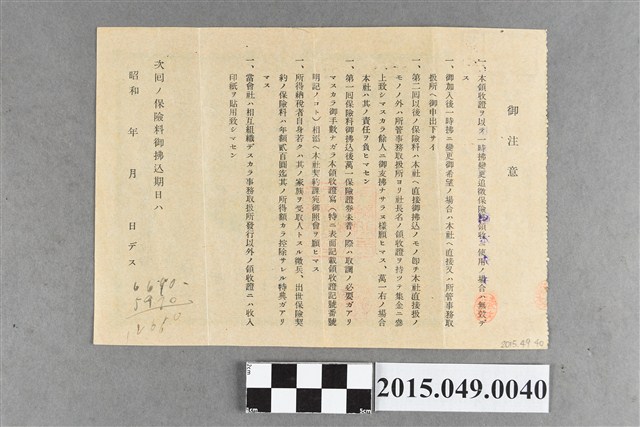 御注意
一、本領收證ヲ以テ一時拂變更追徴保險料領收ニ使用ノ場合ハ無效デ
ス
一、御加入後一時拂ニ變更御希望ノ場合ハ本社ヘ直接又ハ所管事務取
扱所ヘ御申出下サイ
一、第二回以後ノ保險料ハ本社ヘ直接御拂込ノモノ卽チ本社直接扱ノ
モノノ外ハ所管事務取扱所ヨリ社長名ノ領收證ヲ持ツテ集金ニ參
上致シマスカラ餘人ニ御支拂ナサラヌ樣願ヒマス、萬一右ノ場合
本社ハ其ノ責任ヲ負ヒマセン
一、第一回保險料御拂込後萬一保險證券未着ノ際ハ取調ノ必要ガアリ
マスカラ御手數ナガラ本領收證寫(特ニ表面記載領收證記號番號
明記ノコト)相添ヘ本社契約課宛御照會ヲ願ヒマス
一、所得納稅者自身若クハ其ノ家族ヲ受取人トスル徴兵、出世保險契
約ノ保險料ハ年額貳百圓迄其ノ所得額カラ控除サレル特典ガアリ
マス
一、當會社ハ相互組織デスカラ事務取扱所發行以外ノ領收證ニハ收入
印紙ヲ貼用致シマセン
次回ノ保險料御拂込期日ハ
昭和 年 月 日デス
5970
2015.49.40
2cm
5cm
2015.049.0040